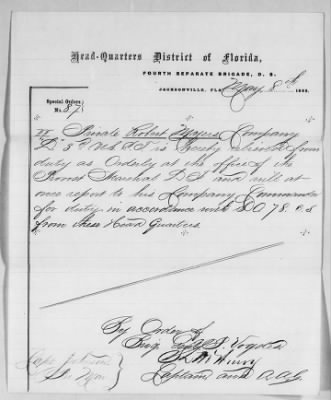 Head-Quarters District of Florida,
FOURTH SEPARATE BRIGADE, D. S.
JACKSONVILLE, FLA. May 8th 1865.
Special Orders:
No. 87.
II Private Robert Company
D 3d U.S.C.T. is hereby relieved from
duty as Orderly at the office of the
Provost Marshal D.F. and will at
once report to his Company Commander
for duty in accordance with S.O. 78. C.S
from these Head Quarters
By Order of
Brig. Genl Vogdes
Captain and A.A.G.